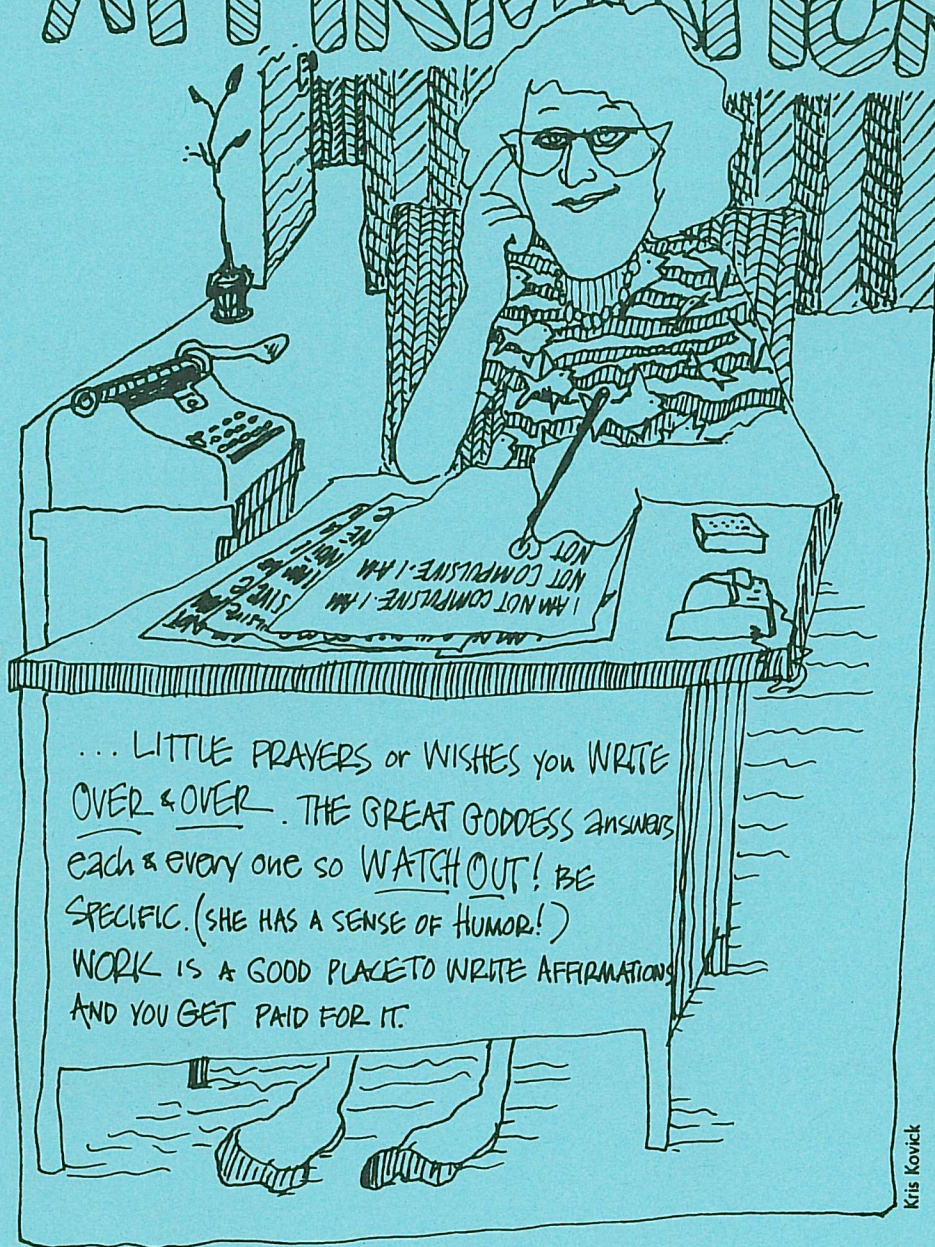 AFFIRMATION
I AM NOT COMPULSIVE. I AM
NOT COMPULSIVE. I AM
NOT
... LITTLE PRAYERS or WISHES you WRITE
OVER & OVER. THE GREAT GODDESS answers
each & every one so WATCH OUT! BE
SPECIFIC. (SHE HAS A SENSE OF HUMOR!)
WORK IS A GOOD PLACE TO WRITE AFFIRMATIONS
AND YOU GET PAID FOR IT.
Kris Kovick